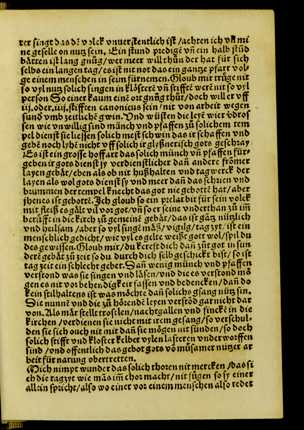 ver singt das dz volck vnuerstentlich ist / achten ich on mi
ne geselle on nuz sein. Ein stund predige vñ ein halb stüd
bätten ist lang gnůg / wer meer will thůn der hat für sich
selbs ein langen tag / es ist nit not das ein gantze pfarr volg
e einem menschen in seim fürnemen. Gloub mit trüge nit
so vyl nuz solich singen in klöstern vñ stifften werē nit so vyl
person So einer kaum eine ort gnůg thůt / doch will er vff
vi, oder vij, stifften canonicus sein nit von arbeit wegen
sund vmb zeitliche gwin. Vnd wüsten die leyē wie verdros
sen wie vnwillig sind münch vnd pfaffen zů solichem tem
pel dienst sie liessen solich nest schwin das it schaffen vnd
gebē noch lybē nicht vff solich it glyßnerisch gots geschray
Es ist ein grosse hoffart das solich münch vñ pfaffen für
geben it gots dienst sy verdienstlicher dañ andere fromer
layen gebät / eben als ob nit hußhalten vnd tagwerck der
layen als wol gots dienst sy vnd meer dañ das schruen vnd
brummen der tempelknecht das got nie gebotē hat / aber
jhenes ist gebotē. Ich gloub so ein prelat bit für sein volck
mit fleiß es gält vil vor got / vñ so er seine vnderthan zů im
berüfft in die kirch zů gemeinē gebät / das ist gätz nützlich
vnd heilsam / aber so vyl singē mäß / vigilg / tag zyt ist ein
menschlich gedicht / wer vyl es gelte weiße gott wol / spil du
des gewissen. Gloub mir / du kerest dich dañ zůr got in sun
derē gebät zů zeit so du durch dich selb geschickt bist / so ist
tag zeit ein schlecht gebet. Sañ wenig münch vnd pfaffen
verstond was sie singen vnd läsen / vnd die es verstond mö
gen es nit vor behendigkeit fassen vnd bedencken / dañ do
kein stilhaltens ist was möcht dañ solichs gsang nütz sin.
Sie nunnē vnd die zů hörendē leyen verstōd gar nicht dar
von. Als mār stelle troslen / nachtgallen vnd fincken in die
kirchen / verdienen sie nicht mit irem gesang / so verschul
den sie sich ouch nit mit dañ sie mögen nit sünden / so doch
solich stifft vnd kloster kelber vylen lasteren vnderworffen
sind / vnd offentlich das gebot gots võ můsamer nützer ar
beit für narung übertretten.
Mich nimpt wunder das solich thoren nit mercken / das si
ch die tagzyt wie mās im chor macht / nit fügen so sy einer
allain spricht / also wo einer vor einem menschen also redet